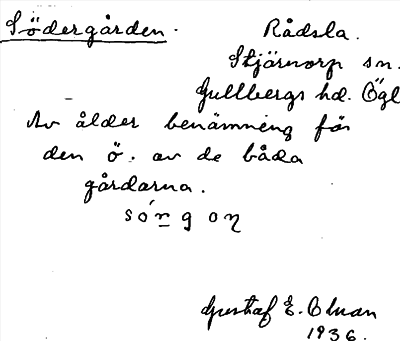 Södergården.
Rådsla.
Stjärnorp sn.
Gullbergs hd. Ögl
Av ålder benämning för
den ö. av de båda
gårdarna.
sǿn̲gɔƞ
Gustaf E. Olsson
1936.